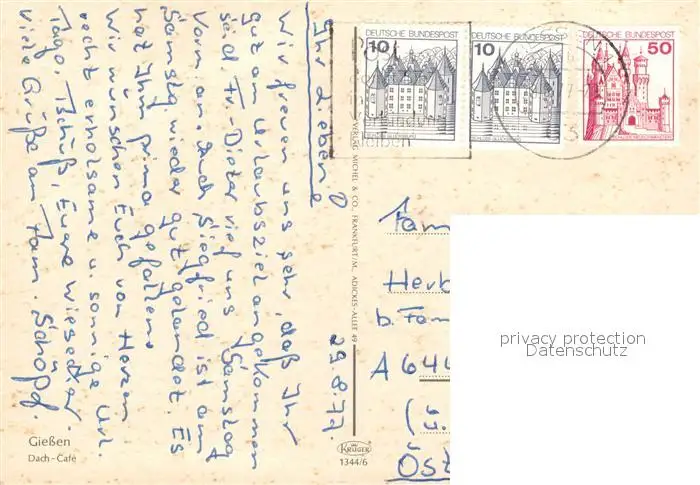 29.8.77.
Ihr Lieben!
Wir freuen uns sehr, daß Ihr
gut am Urlaubsziel angekommen
seid. Fr. Dieter rief uns Samstag
vorm. an. Auch Siegfried ist am
Samstag wieder gut gelandet. Es
hat Ihm prima gefallen.
Wir wünschen Euch von Herzen
recht erholsame u. sonnige Url.
Tage. Tschüß, Euere Wiesecker.
Viele Grüße an Fam. Schöpf.
Gießen
Dach-Café
VERLAG MICHEL & CO., FRANKFURT/M., ADICKES-ALLEE 49
KRÜGER
1344/6
DEUTSCHE BUNDESPOST
10
DEUTSCHE BUNDESPOST
10
DEUTSCHE BUNDESPOST
50
bleiben
Fam
Herb
b. Fam
A 644
(ü.
Öst
privacy protection
Datenschutz